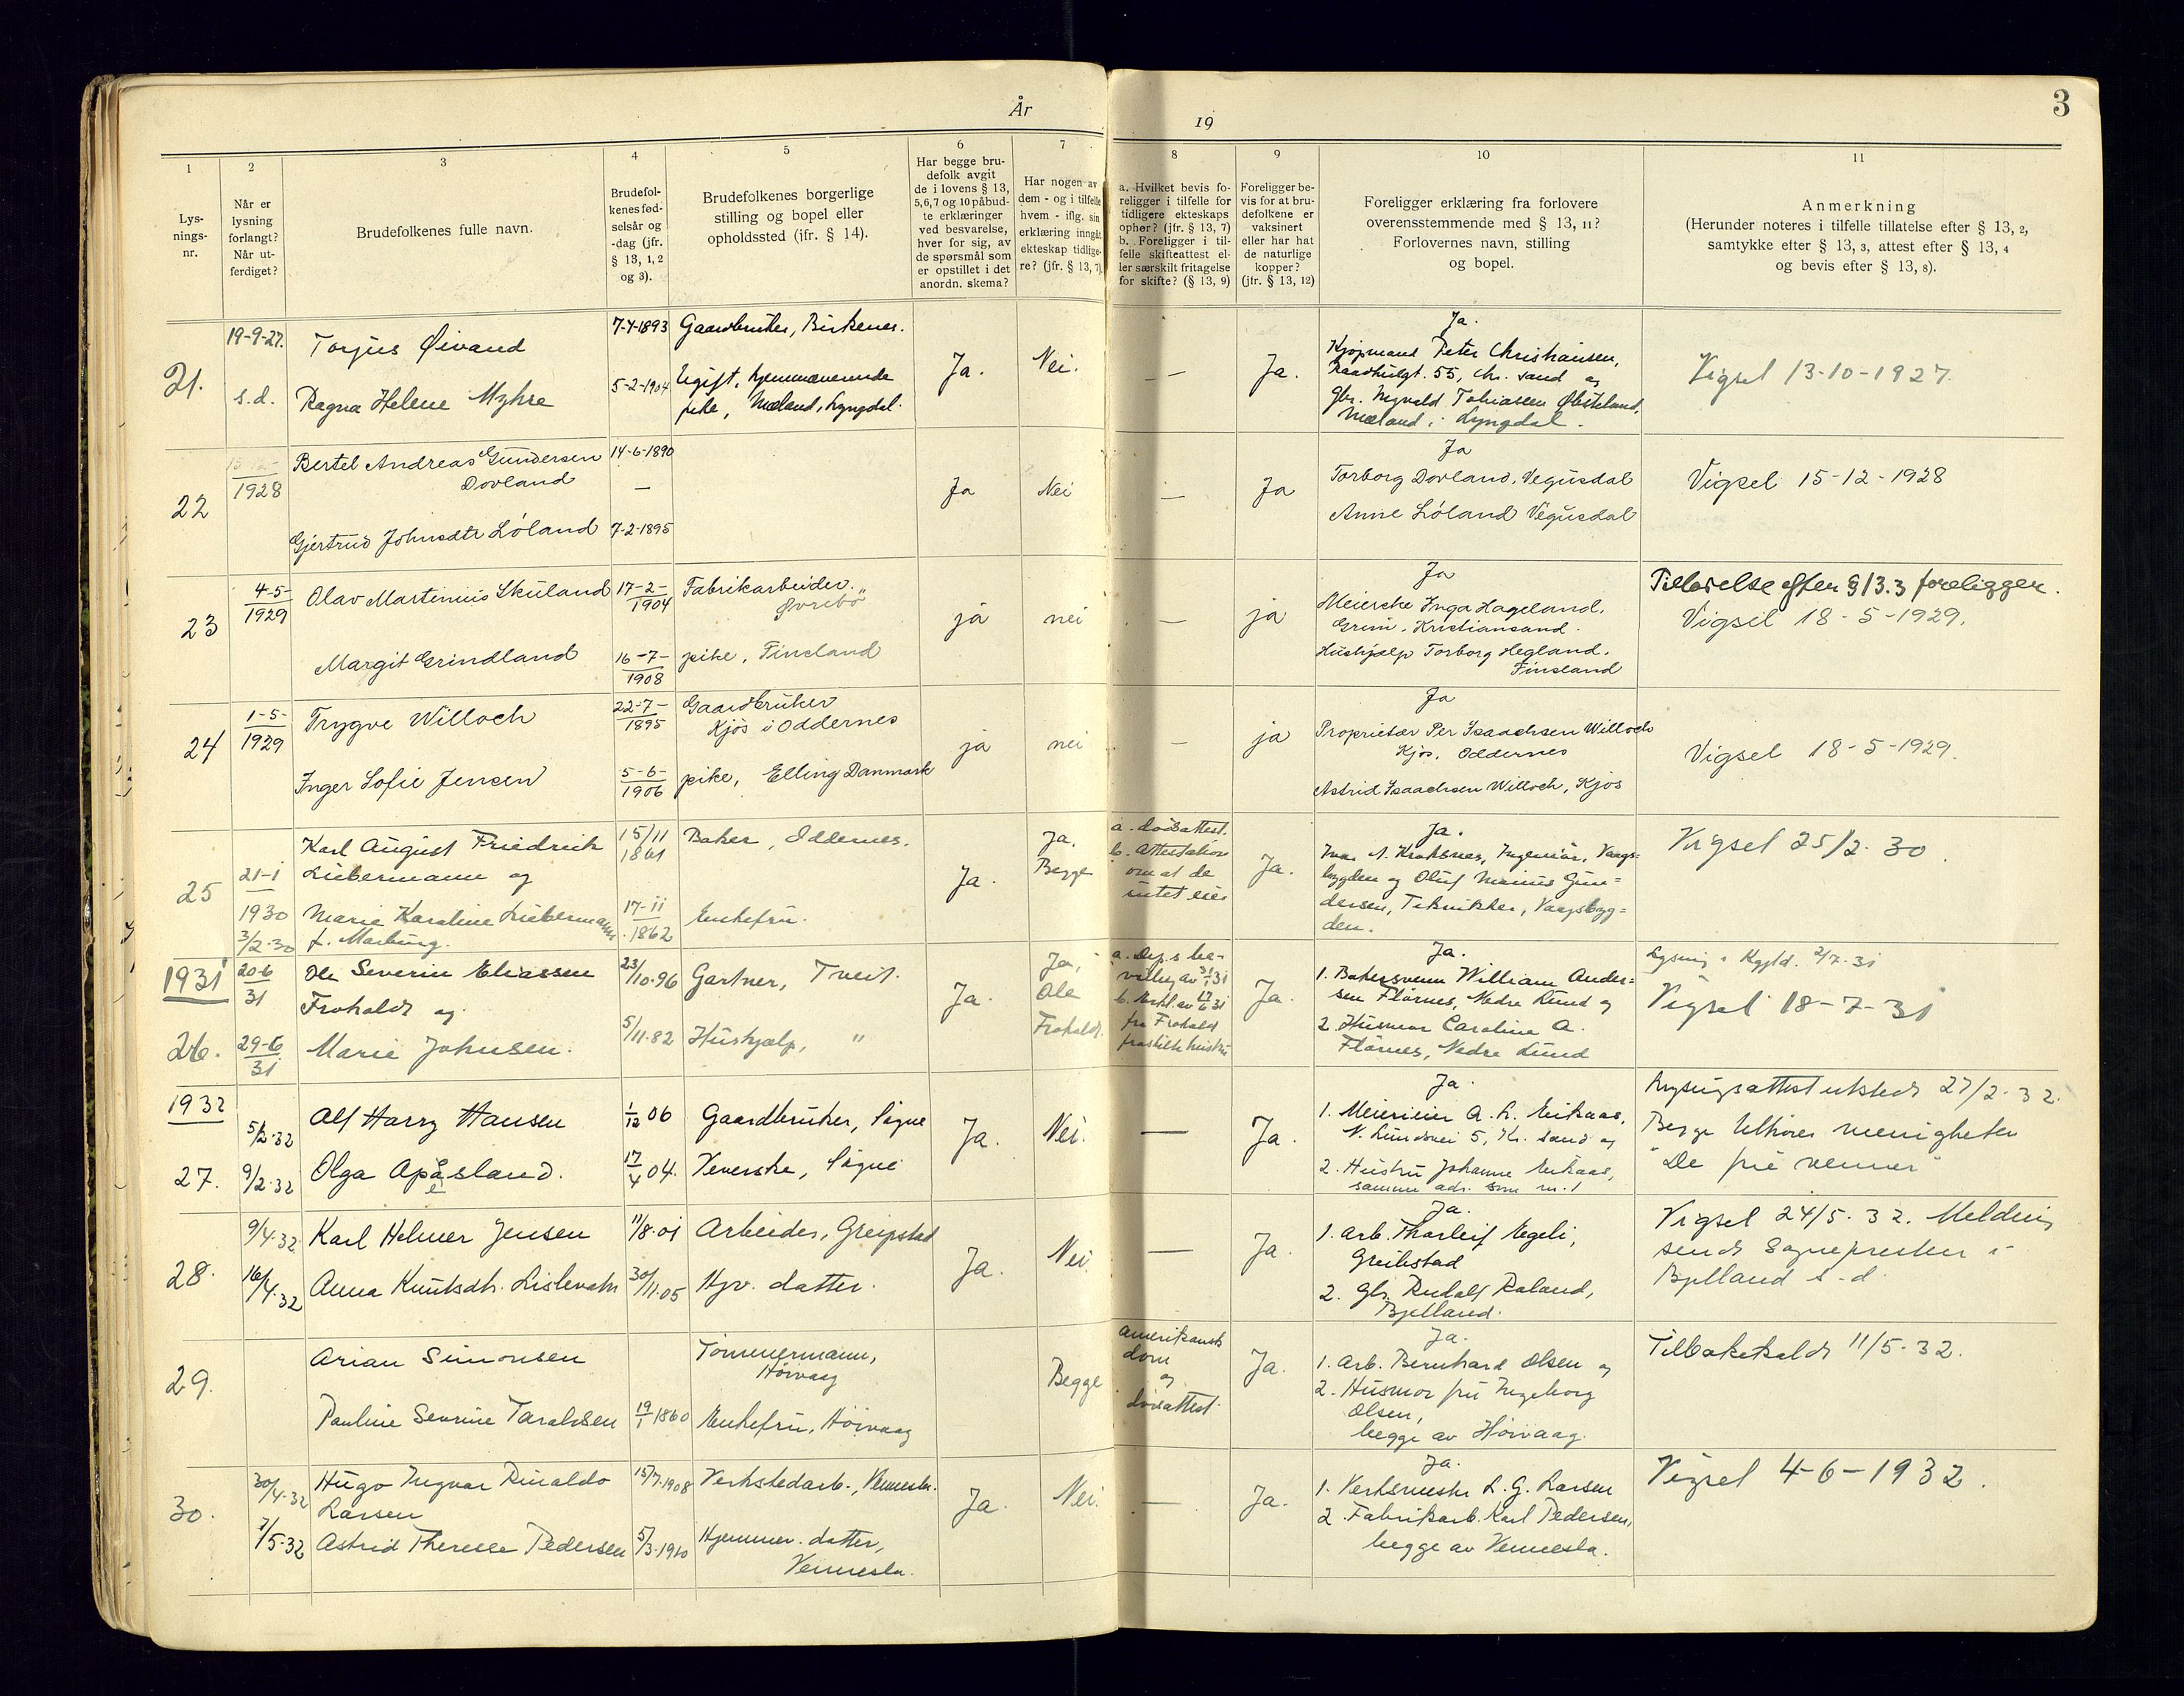 År
19
3
1
Lys-
nings-
nr.
2
Når er
lysning
forlangt?
Når ut-
ferdiget?
3
Brudefolkenes fulle navn.
4
Brudefol-
kenes fød-
selsår og
-dag (jfr.
§ 13, 1, 2
og 3).
5
Brudefolkenes borgerlige
stilling og bopel eller
opholdssted (jfr. § 14).
6
Har begge bru-
defolk avgit
de i lovens § 13,
5,6,7 og 10 påbud-
te erklæringer
ved besvarelse,
hver for sig, av
de spørsmål som
er opstillet i det
anordn. skema?
7
Har nogen av
dem - og i tilfelle
hvem - iflg. sin
erklæring inngåt
ekteskap tidlige-
re? (jfr. § 13, 7).
8
a. Hvilket bevis fo-
religger i tilfelle for
tidligere ekteskaps
ophør? (jfr. § 13, 7)
b. Foreligger i til-
felle skifteattest el-
ler særskilt fritagelse
for skifte? (§ 13, 9)
9
Foreligger be-
vis for at bru-
defolkene er
vaksinert
eller har hat
de naturlige
kopper?
(jfr. § 13, 12)
10
Foreligger erklæring fra forlovere
overensstemmende med § 13, 11?
Forlovernes navn, stilling
og bopel.
11
Anmerkning
(Herunder noteres i tilfelle tillatelse efter § 13, 2,
samtykke efter § 13, 3, attest efter § 13, 4
og bevis efter § 13, 8).
21.
19-9-27.
s.d.
Torjus Øivand
Ragna Helene Myhre
7-4-1893
5-2-1904
Gaardbruker, Birkenes.
Ugift, hjemmeværende
pike, Mæland, Lyngdal.
Ja.
Nei.
—
Ja.
Ja.
Kjøpmand Peter Christiansen,
Raadhusgt. 55, Chr. sand og
Gbr. Ingvald Tobiassen
Mæland i Lyngdal.
Vigsel 13-10-1927.
22
1928
Bertel Andreas Gundersen
Dovland
Gjertrud Johnsdtr Lóland
14-6-1890
—
7-2-1895
Ja
Nei
—
Ja
Ja
Torborg Dovland, Vegusdal
Anne Lóland Vegusdal
Vigsel 15-12-1928
23
4-5-
1929
Olav Martinius Skuland
Margit Grindland
17-2-
1904
16-7-
1908
Fabrikarbeider.
Øvrebø
pike, Finsland
ja
nei
—
ja
Ja
Meierske Inga Hageland,
Grim, Kristiansand.
Hushjælp Torborg Hegland,
Finsland
Tillatelse efter § 13.3 foreligger.
Vigsel 18-5-1929.
24
1-5-
1929
Trygve Willoch
Inger Sofie Jensen
22-7-
1895
5-6-
1906
Gaardbruker
Kjos i Oddernes
pike, Elling Danmark
ja
nei
—
ja
Ja
Proprietær Per Isaachsen Willoch
Kjos, Oddernes
Astrid Isaachsen Willoch, Kjos
Vigsel 18-5-1929.
25
21-1
1930
3/2-30
Karl August Friedrich
Liebermann og
Marie Karoline Liebermann
f. Marburg.
15/11
1861
17-11
1862
Baker, Oddernes.
Enkefru.
Ja.
Ja,
Begge
a. dødsattest.
b. Attestation
om at de
intet eier
Ja.
Ja.
Ingeniør, Vaags-
bygden og Oluf Marius Gun-
dersen, Tekniker, Vaagsbyg-
den.
Vigsel 25/2-30.
1931
26.
20-6
31
29-6
31
Ole Severin Eliassen
Froholdt og
Marie Johnsen.
23/10-96
5/11-82
Gartner, Tveit.
Hushjælp, "
Ja.
Ja,
Ole
Froholdt.
a. Dep.s be-
villing av 31/1 31
fra Froholdt
fraskilte hustru
Ja.
Ja.
1. Bakersvenn William Ander-
sen Flørnes, Nedre Lund og
2. Husmor Caroline A.
Flørnes, Nedre Lund
Lysning i Kgjld. 2/7-31
Vigsel 18-7-31
1932
27.
5/2-32
9/2-32
Alf Harry Hansen
Olga Apåsland.
e
1/12 06
17/4 04.
Gaardbruker, Søgne
Veverske, Søgne
Ja.
Nei.
—
Ja.
Ja.
1. Meierieier A. L. Eikaas,
N. Lundsvei 5, Kr. sand og
2. Hustru Johanne Eikaas,
samme adr. som nr. 1
Lysingsattest utstedt 27/2-32.
Begge tilhører menigheten
"De frie venner"
28.
9/4-32
16/4-32
Karl Helmer Jensen
Anna Knutsdtr. Lislevatn
11/8-01
30/11-05
Arbeider, Greipstad
Hjv. datter.
Ja.
Nei.
—
Ja.
Ja.
1. Arb. Tharleif Egeli,
Greibstad
2. Gbr. Rudolf Røland,
Bjelland.
Vigsel 24/5-32. Melding
sendt Sognepresten i
Bjelland s.d.
29.
Arian Simonsen
Pauline Severine Taraldsen
19/1 1860
Tømmermann,
Høivaag
Enkefru, Høivaag
Begge
amerikansk
dom
og
dødsattest.
Ja.
Ja.
1. Arb. Bernhard Olsen og
2. Husmor fru Ingeborg
Olsen,
begge av Høivaag.
Tilbakekaldt 11/5-32.
30.
30/4-32
7/5-32
Hugo Ingvar Rinaldo
Larsen
Astrid Therese Pedersen
15/7-1908
5/3-1910
Verkstedarb., Vennesla.
Hjemmev. datter,
Vennesla.
Ja.
Nei.
—
Ja.
Ja.
1. Verksmester L. G. Larsen
2. Fabrikarb. Karl Pedersen,
begge av Vennesla.
Vigsel 4-6-1932.